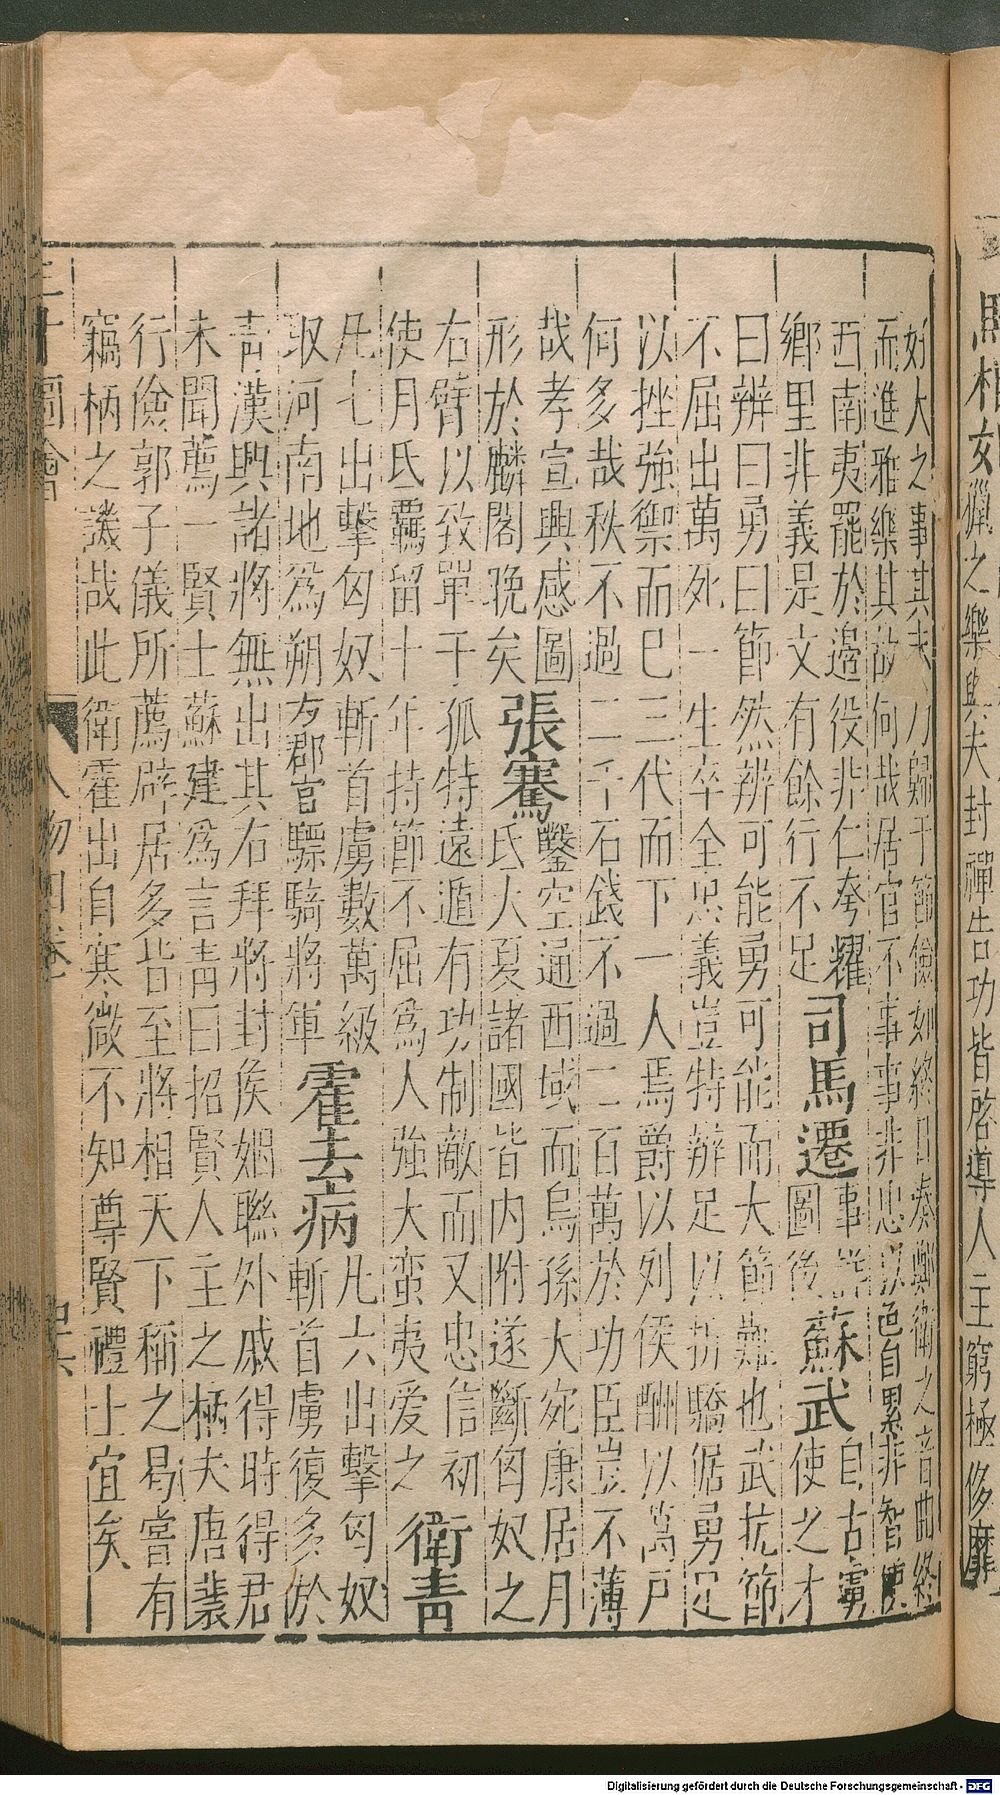 馬相如
獵之樂與夫封禪告功皆啓導人主窮極侈靡
好大之事其夫乃歸于節儉如終日奏鄭衛之音曲終
而進雅樂其故何哉居官不事事非忠以色自累非智使
西南夷罷於邊役非仁夸耀
鄉里非義是文有餘行不足
司馬遷
事詳
圖後
蘇武
自古虜
使之才
曰辨曰勇曰節然辨可能勇可能而大節難也武抗節
不屈出萬死一生卒全忠義豈特辨足以折驕倨勇足
以挫強禦而巳三代而下一人焉爵以列侯酬以萬戸
何多哉秩不過二千石錢不過二百萬於功臣豈不薄
哉孝宣興感圖
形於麟閣晚矣
張騫
鑿空通西域而烏孫大宛康居月
氏大夏諸國皆内附遂斷匈奴之
右臂以致單于孤特遠遁有功制敵而又忠信初
使月氏覊留十年持節不屈爲人強大蛮夷爱之
衛青
凡七出擊匈奴斬首虜數萬級
取河南地爲朔方郡官驃騎將軍
霍去病
凡六出擊匈奴
斬首虜復多於
青漢興諸將無出其右拜將封矦婣聯外戚得時得君
未聞薦一賢士蘇建爲言青曰招賢人主之柄夫唐裴
行儉郭子儀所薦辟居多皆至將相天下稱之曷嘗有
竊柄之譏哉此衛霍出自寒微不知尊賢禮士宜矣
三才圖會
人物四卷
Digitalisierung gefördert durch die Deutsche Forschungsgemeinschaft - DFG